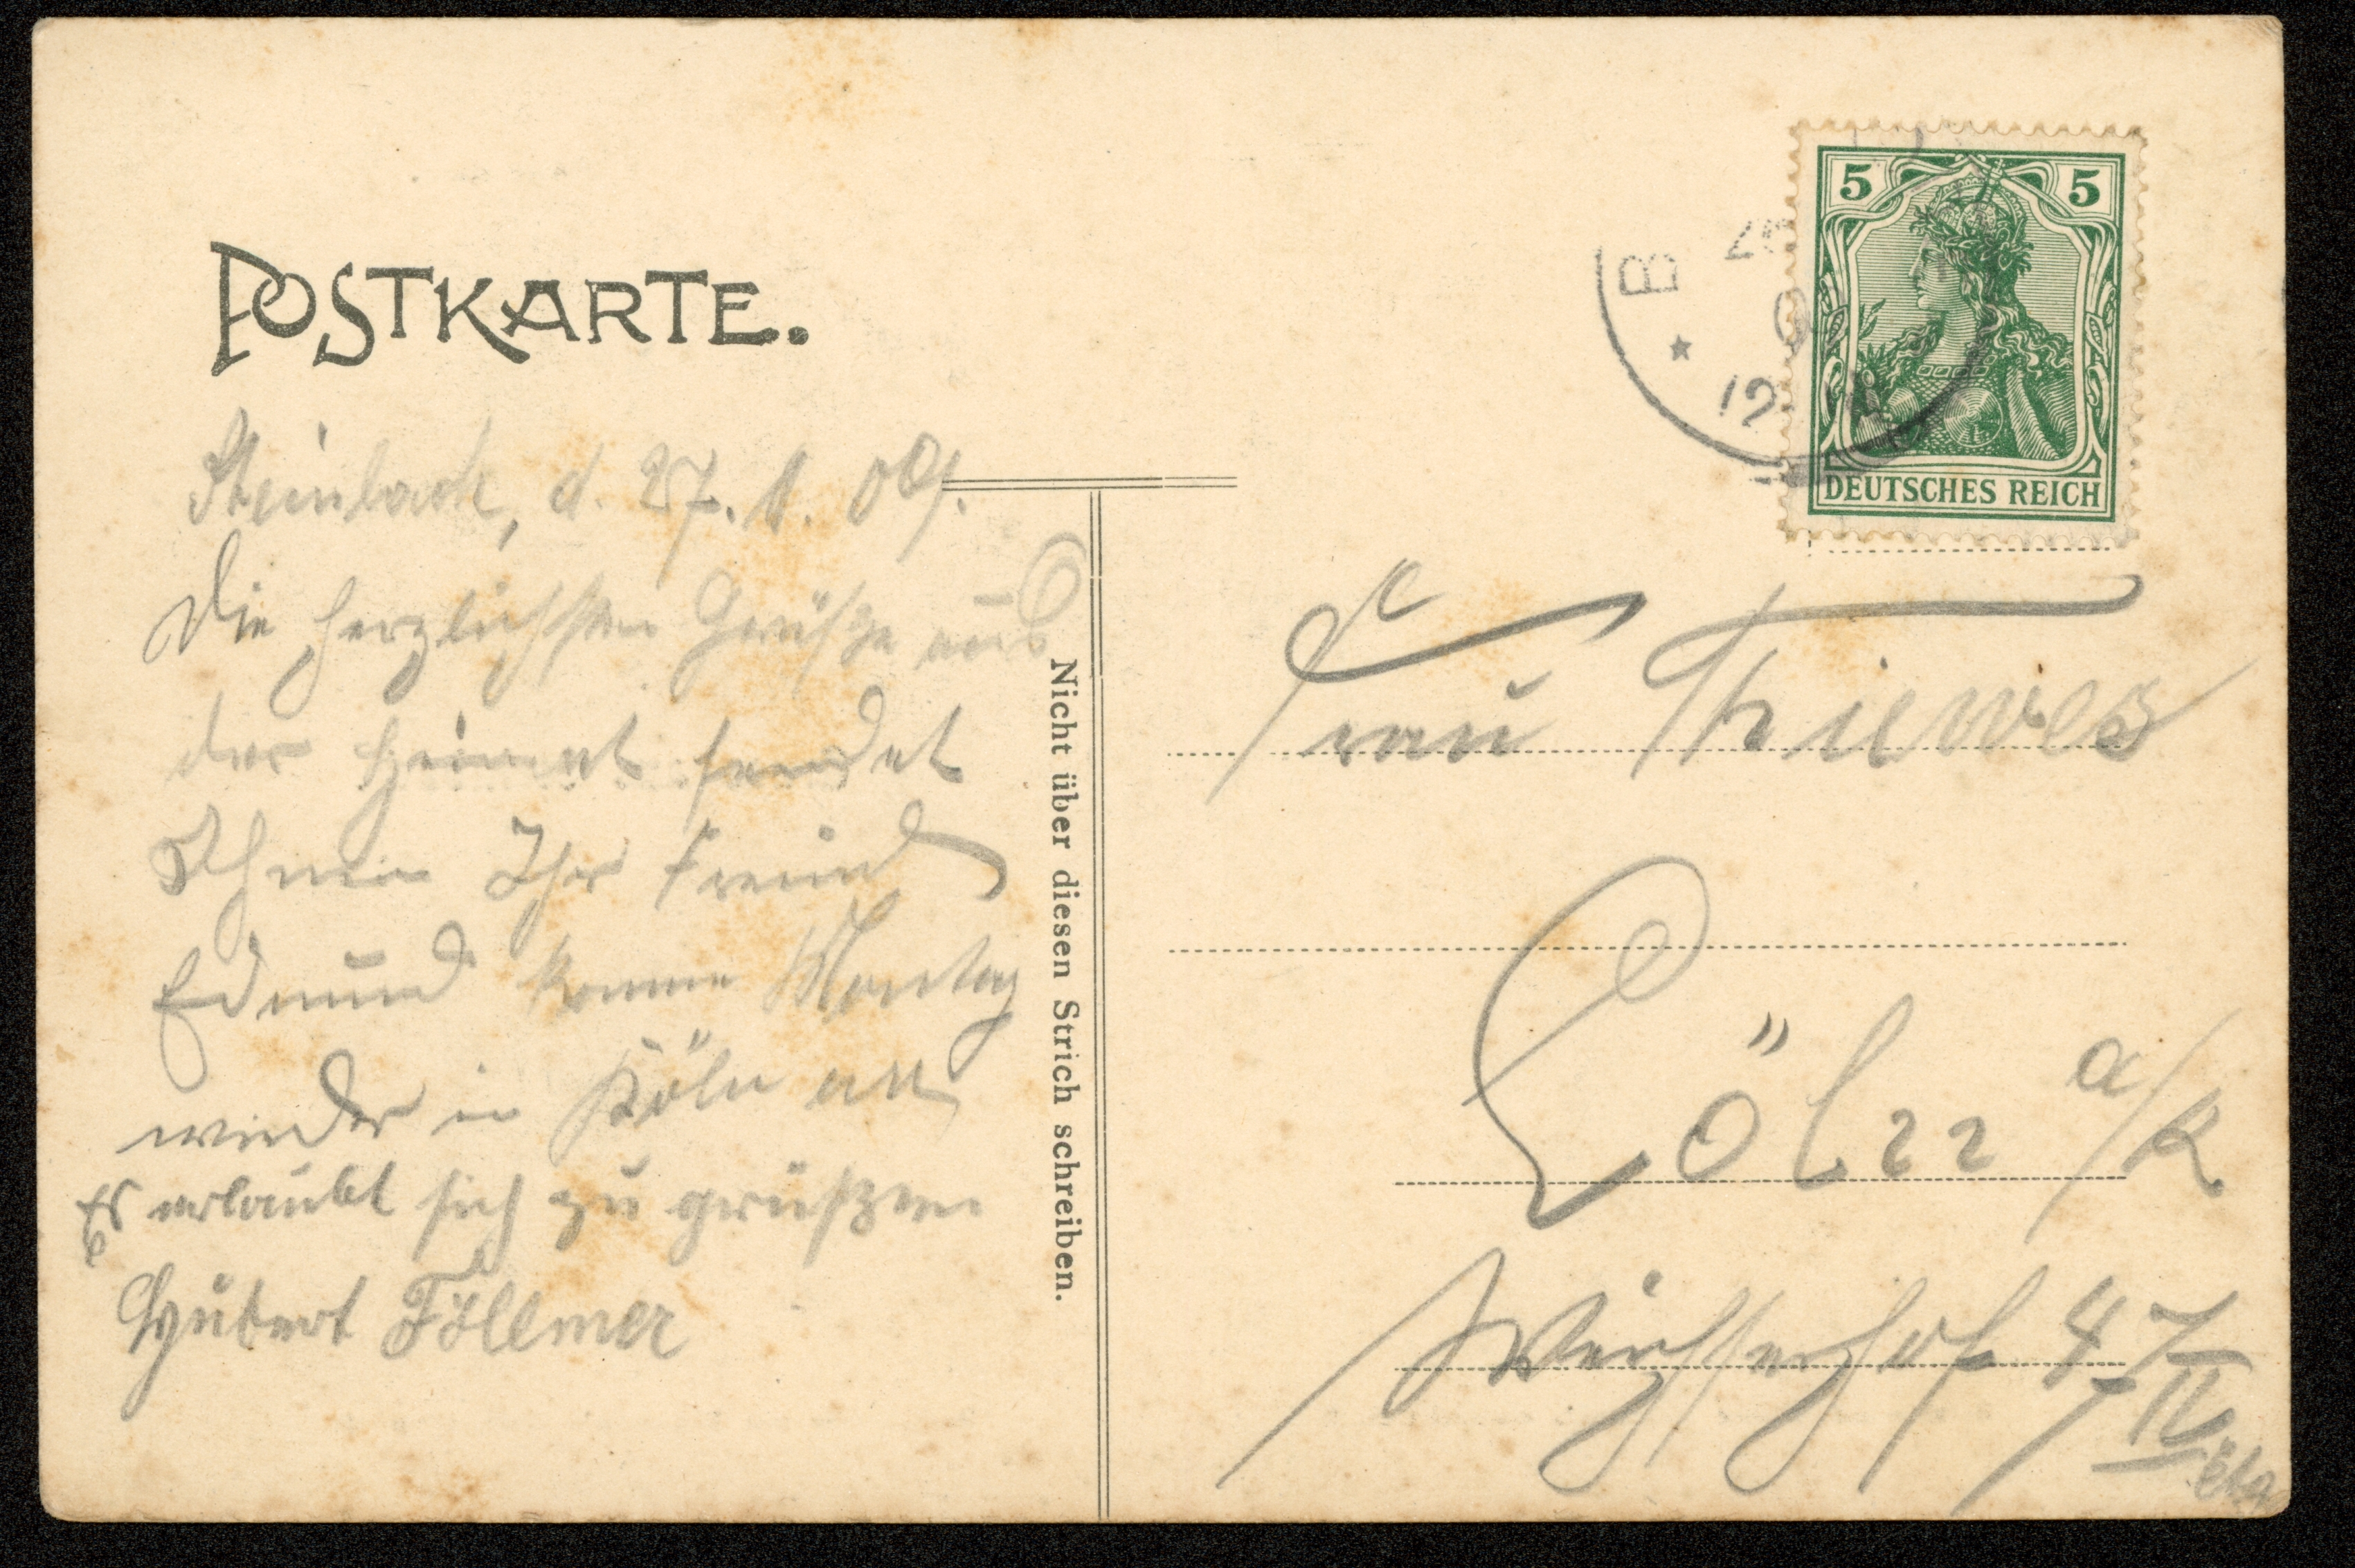 POSTKARTE.
Steinbach, d. 27. 1. 09.
Die herzlichsten Grüße aus
der Heimat sendet
Ihnen Ihr Freund
Edmund komme Montag
wieder in Köln an
Es erlaubt sich zu grüßen
Hubert Föllmer
Nicht über diesen Strich schreiben.
5 5
DEUTSCHES REICH
B
12
Frau Thiewes
Cöln a/R
47 II